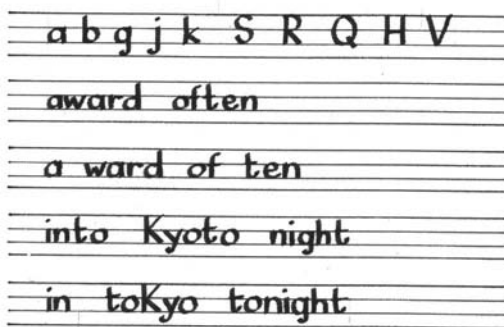 a b g j k S R Q H V
award often
a ward of ten
into Kyoto night
in toKyo tonight